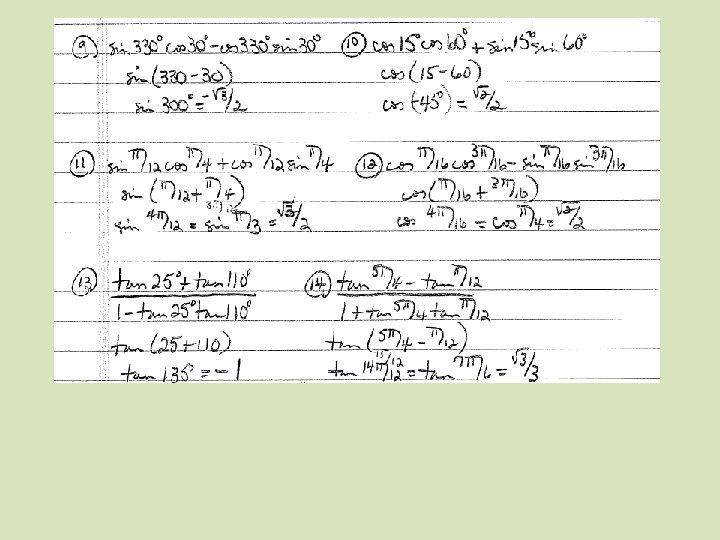 9) sin 330° cos 30° - cos 330° sin 30°
sin (330 - 30)
sin 300° = -√3/2
10) cos 15° cos 60° + sin 15° sin 60°
cos (15 - 60)
cos (-45°) = √2/2
11) sin π/12 cos π/4 + cos π/12 sin π/4
sin (π/12 + π/4)
sin 4π/12 = sin π/3 = √3/2
12) cos π/16 cos 3π/16 - sin π/16 sin 3π/16
cos (π/16 + 3π/16)
cos 4π/16 = cos π/4 = √2/2
13) tan 25° + tan 110°
1 - tan 25° tan 110°
tan (25 + 110)
tan 135° = -1
14) tan 5π/4 - tan π/12
1 + tan 5π/4 tan π/12
tan (5π/4 - π/12)
tan 14π/12 = tan 7π/6 = √3/3